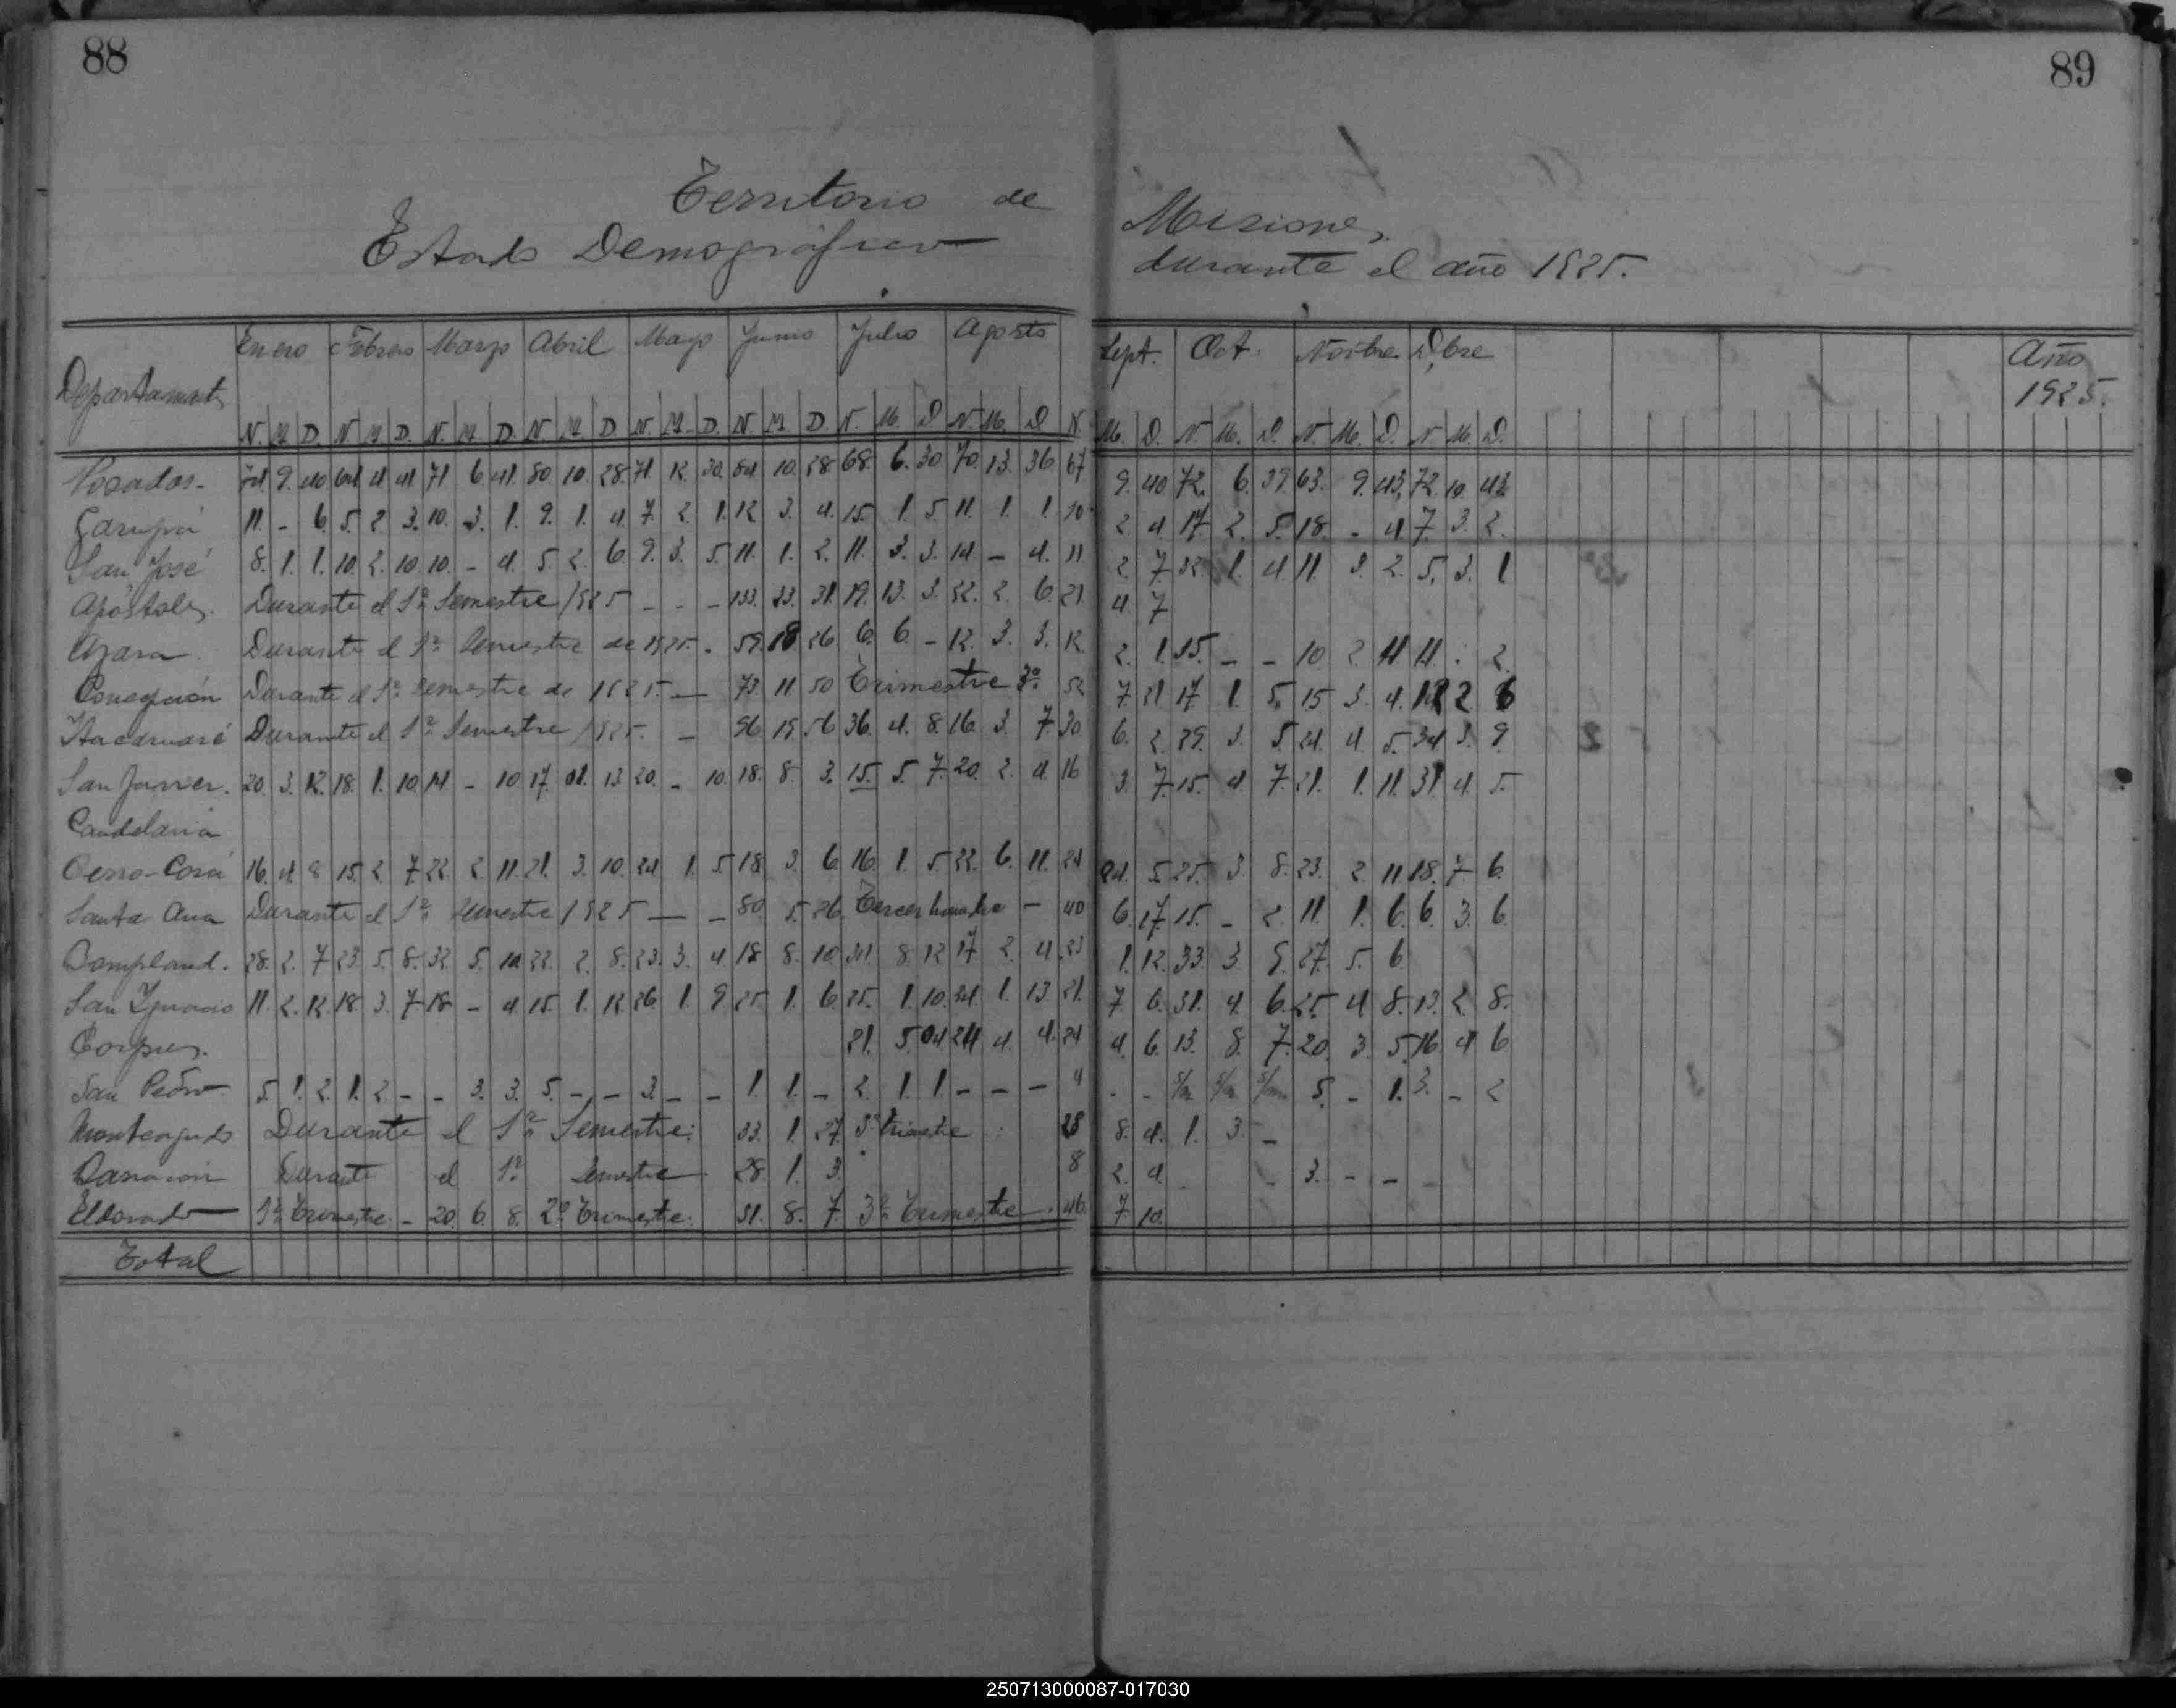 88
89
Territorio de Misiones
Estado Demográfico durante el año 1925.
Departament. Enero Febrero Marzo Abril Mayo Junio Julio Agosto Sept. Oct. Novbre Dbre Año 1925.
N. M. D. N. M. D. N. M. D. N. M. D. N. M. D. N. M. D. N. M. D. N. M. D. N. M. D. N. M. D. N. M. D. N. M. D.
Posadas. 9. 40 64 4 41 71 6 41. 80. 10. 28. 71 12. 30. 84 10. 28 68. 6. 30 70. 13. 36. 67 9. 40 72. 6. 39 63. 9. 43. 72. 10. 43
Garupá 11. - 6. 5. 2 3. 10. 3. 1. 9. 1. 4. 7. 2. 1. 12 3. 4. 15. 1. 5 11. 1. 1. 10 2. 4 17 2. 5. 18. - 4 7. 3. 2.
San José 8. 1. 1. 10. 2. 10. 10. - 4. 5. 2. 6. 9. 3. 5. 11. 1. 2. 11. 3. 3. 14. - 4. 11 2. 7 32 1. 4 11. 3. 2. 5. 3. 1
Apóstoles. Durante el 1er Semestre 1925 - - - 133. 23. 31. 19. 13. 3. 22. 2. 6. 21. 4. 7
Azara Durante el 1er Semestre de 1925. 59. 18 26 6. 6. - 12. 3. 3. 12 2. 1. 15. - - 10 2. 11 11. . 2.
Concepción Durante el 1er Semestre de 1925. — 73. 11 50 Trimestre 3o. 52 7. 21 17 1. 5. 15 3. 4. 12 2 6
Itacaruaré Durante el 1er Semestre 1925. - 96 19 56 36. 4. 8. 16. 3. 7. 30. 6. 2. 29. 3. 5. 24. 4. 5. 34 3. 9.
San Javier. 20. 3. 12. 18. 1. 10. 14 - 10. 17. 01. 13 20. - 10. 18. 8. 3. 15. 5. 7. 20. 2. 4. 16 3. 7. 15. 4 7. 21. 1. 11. 31. 4. 5.
Candelaria
Cerro-Corá 16. 4. 8 15. 2 7. 22. 2. 11. 21. 3. 10. 24 1. 5. 18 3. 6. 16. 1. 5. 22. 6. 11. 24 24. 5. 25. 3. 8. 23. 2. 11 18. 7. 6.
Santa Ana Durante el 1er Semestre 1925 — - 80. 5. 26. Tercer trimestre - 40 6. 17. 15. - 2. 11. 1. 6. 6. 3. 6.
Bompland. 28. 2. 7 23. 5. 8. 32. 5. 10 22. 2. 8. 23. 3. 4 18 8. 10. 31 8. 12 17 2. 4. 23 1. 12. 33. 3. 5. 27. 5. 6.
San Ignacio 11. 2. 12. 18. 3. 7 18 - 4. 15. 1. 12. 26. 1. 9. 25. 1. 6. 25. 1. 10. 34. 1. 13. 21. 7 6. 31. 4. 6. 25. 4 8. 13. 2 8.
Corpus. 21. 5. 04 24 4. 4. 24 4. 6. 13. 8. 7. 20. 3. 5. 16 4 6
San Pedro 5. 1. 2. 1. 2. - - 3. 3. 5. - - 3. - - 1. 1. - 2. 1. 1. - - - 4 - - s/m s/m s/m 5. - 1. 3. - 2
Monteagudo Durante el 1er Semestre. 33. 1. 27. 3er trimestre 28 8. 4. 1. 3. -
Durante el 1er Semestre. 28. 1. 3. 8 2. 4. - 3. - -
Eldorado 1er Trimestre. - 20. 6. 8. 2o Trimestre. 31. 8. 7. 3er Trimestre. 46. 7. 10.
Total
250713000087-017030